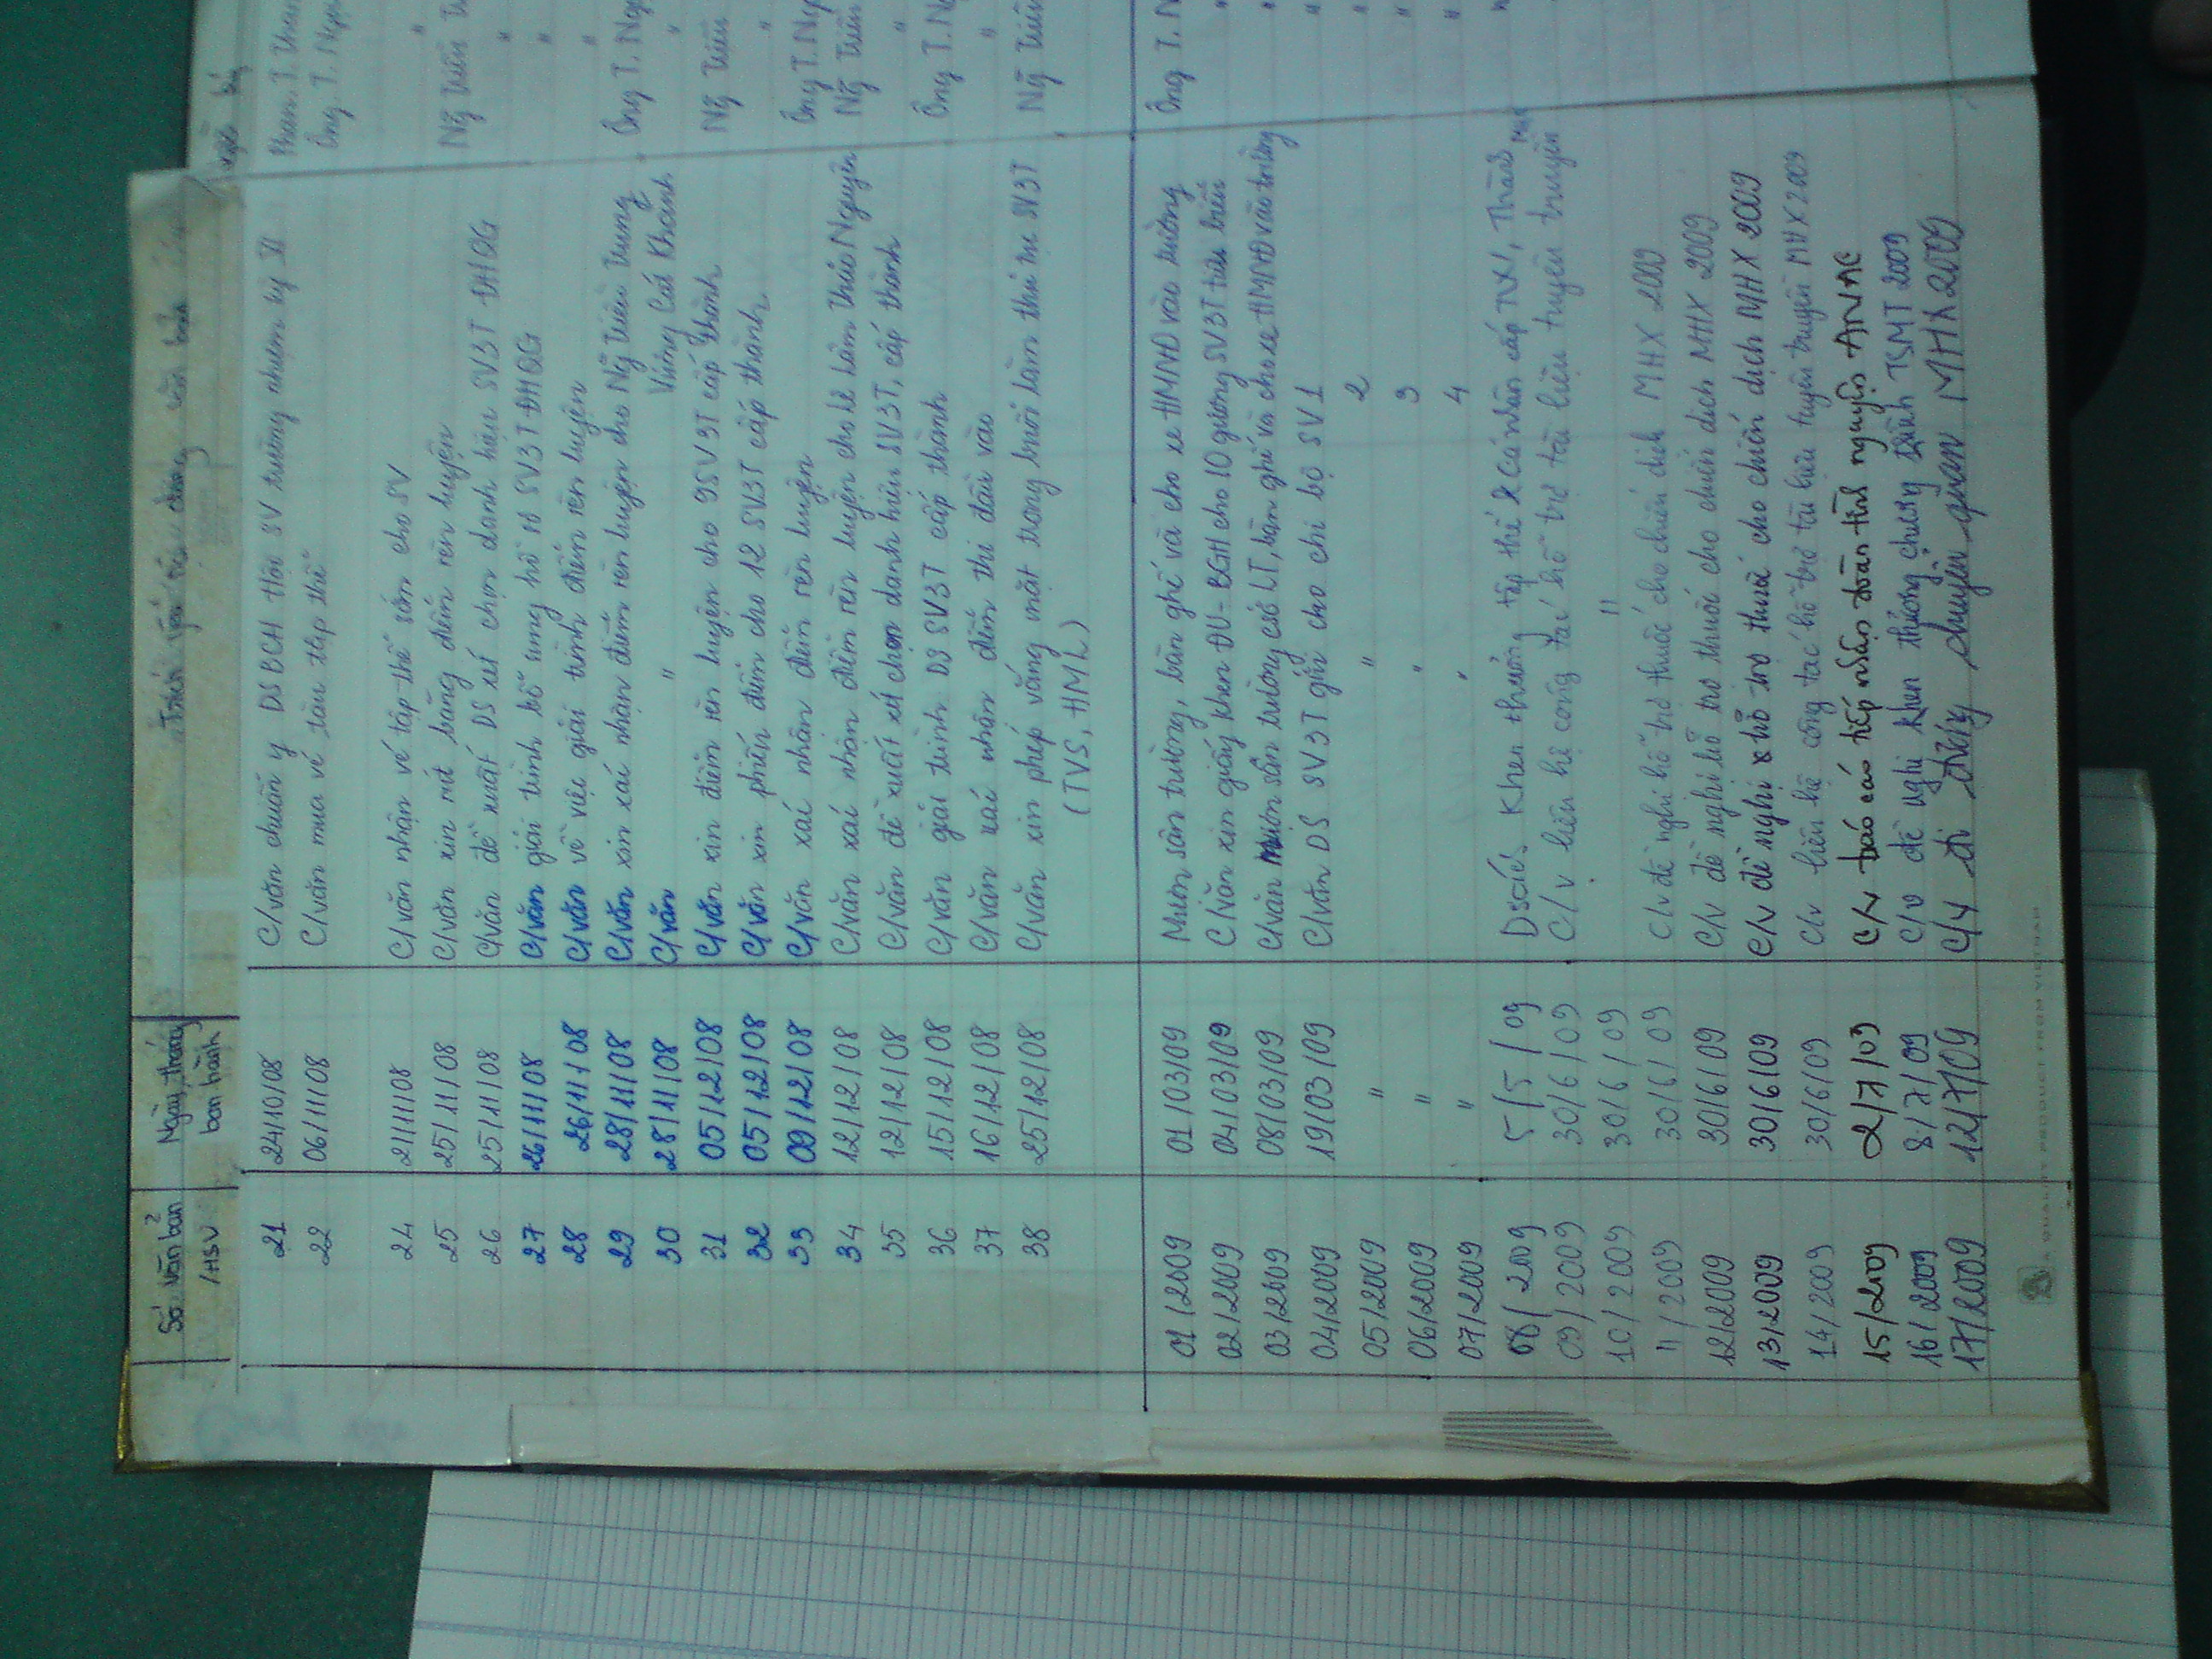 Số văn bản /HSV Ngày tháng ban hành Trích yếu nội dung văn bản
21 24/10/08 C/văn chuẩn y DS BCH Hội SV trường nhiệm kỳ XI Phan. T. Than
22 06/11/08 C/văn mua vé tàu tập thể Ông T. Ngu
24 21/11/08 C/văn nhận vé tập thể sớm cho SV "
25 25/11/08 C/văn xin rút bảng điểm rèn luyện Ng̃ Triều
26 25/11/08 C/văn đề xuất DS xét chọn danh hiệu SV3T ĐHQG "
27 26/11/08 C/văn giải trình bổ sung hồ sơ SV3T ĐHQG "
28 26/11/08 C/văn về việc giải trình điểm rèn luyện "
29 28/11/08 C/văn xin xác nhận điểm rèn luyện cho Ng̃ Triều Trung Ông T. Ngu
30 28/11/08 C/văn " Vương Cát Khánh "
31 05/12/08 C/văn xin điểm rèn luyện cho 9SV3T cấp thành Ng̃ Triều
32 05/12/08 C/văn xin phiếu điểm cho 12 SV3T cấp thành "
33 09/12/08 C/văn xác nhận điểm rèn luyện Ông T. Ngu
34 12/12/08 C/văn xác nhận điểm rèn luyện cho Lê Lâm Thảo Nguyên Ng̃ Triều
35 12/12/08 C/văn đề xuất xét chọn danh hiệu SV3T, cấp thành "
36 15/12/08 C/văn giải trình DS SV3T cấp thành Ông T. Ng
37 16/12/08 C/văn xác nhận điểm thi đầu vào "
38 25/12/08 C/văn xin phép vắng mặt trong buổi làm thủ tục SV3T Ng̃ Triều
(TVS, HML)
01/2009 01/03/09 Mượn sân trường, bàn ghế và cho xe HMNĐ vào trường Ông T. N
02/2009 04/03/09 C/văn xin giấy khen ĐU-BGH cho 10 gương SV3T tiêu biểu "
03/2009 08/03/09 C/văn mượn sân trường cs LT, bàn ghế và cho xe HMNĐ vào trường "
04/2009 19/03/09 C/văn DS SV3T gửi cho chi bộ SV1 "
05/2009 " " 2 "
06/2009 " " 3 "
07/2009 " " 4 "
08/2009 5/5/09 Dsách Khen thưởng tập thể & Cá nhân cấp TW, Thành "
09/2009 30/6/09 C/v liên hệ công tác hỗ trợ tài liệu tuyên truyền
10/2009 30/6/09 "
11/2009 30/6/09 C/v đề nghị hỗ trợ thuốc cho chiến dịch MHX 2009
12/2009 30/6/09 C/v đề nghị hỗ trợ thuốc cho chiến dịch MHX 2009
13/2009 30/6/09 C/v đề nghị hỗ trợ thuốc cho chiến dịch MHX 2009
14/2009 30/6/09 C/v liên hệ công tác hỗ trợ tài liệu tuyên truyền MHX 2009
15/2009 2/7/09 C/v báo cáo tiếp nhận đoàn tình nguyện
16/2009 8/7/09 C/v đề nghị khen thưởng chương trình TSMT 2009
17/2009 12/7/09 C/v đi đường chuyên MHX2009
A QUALITY PRODUCT FROM VIETNAM